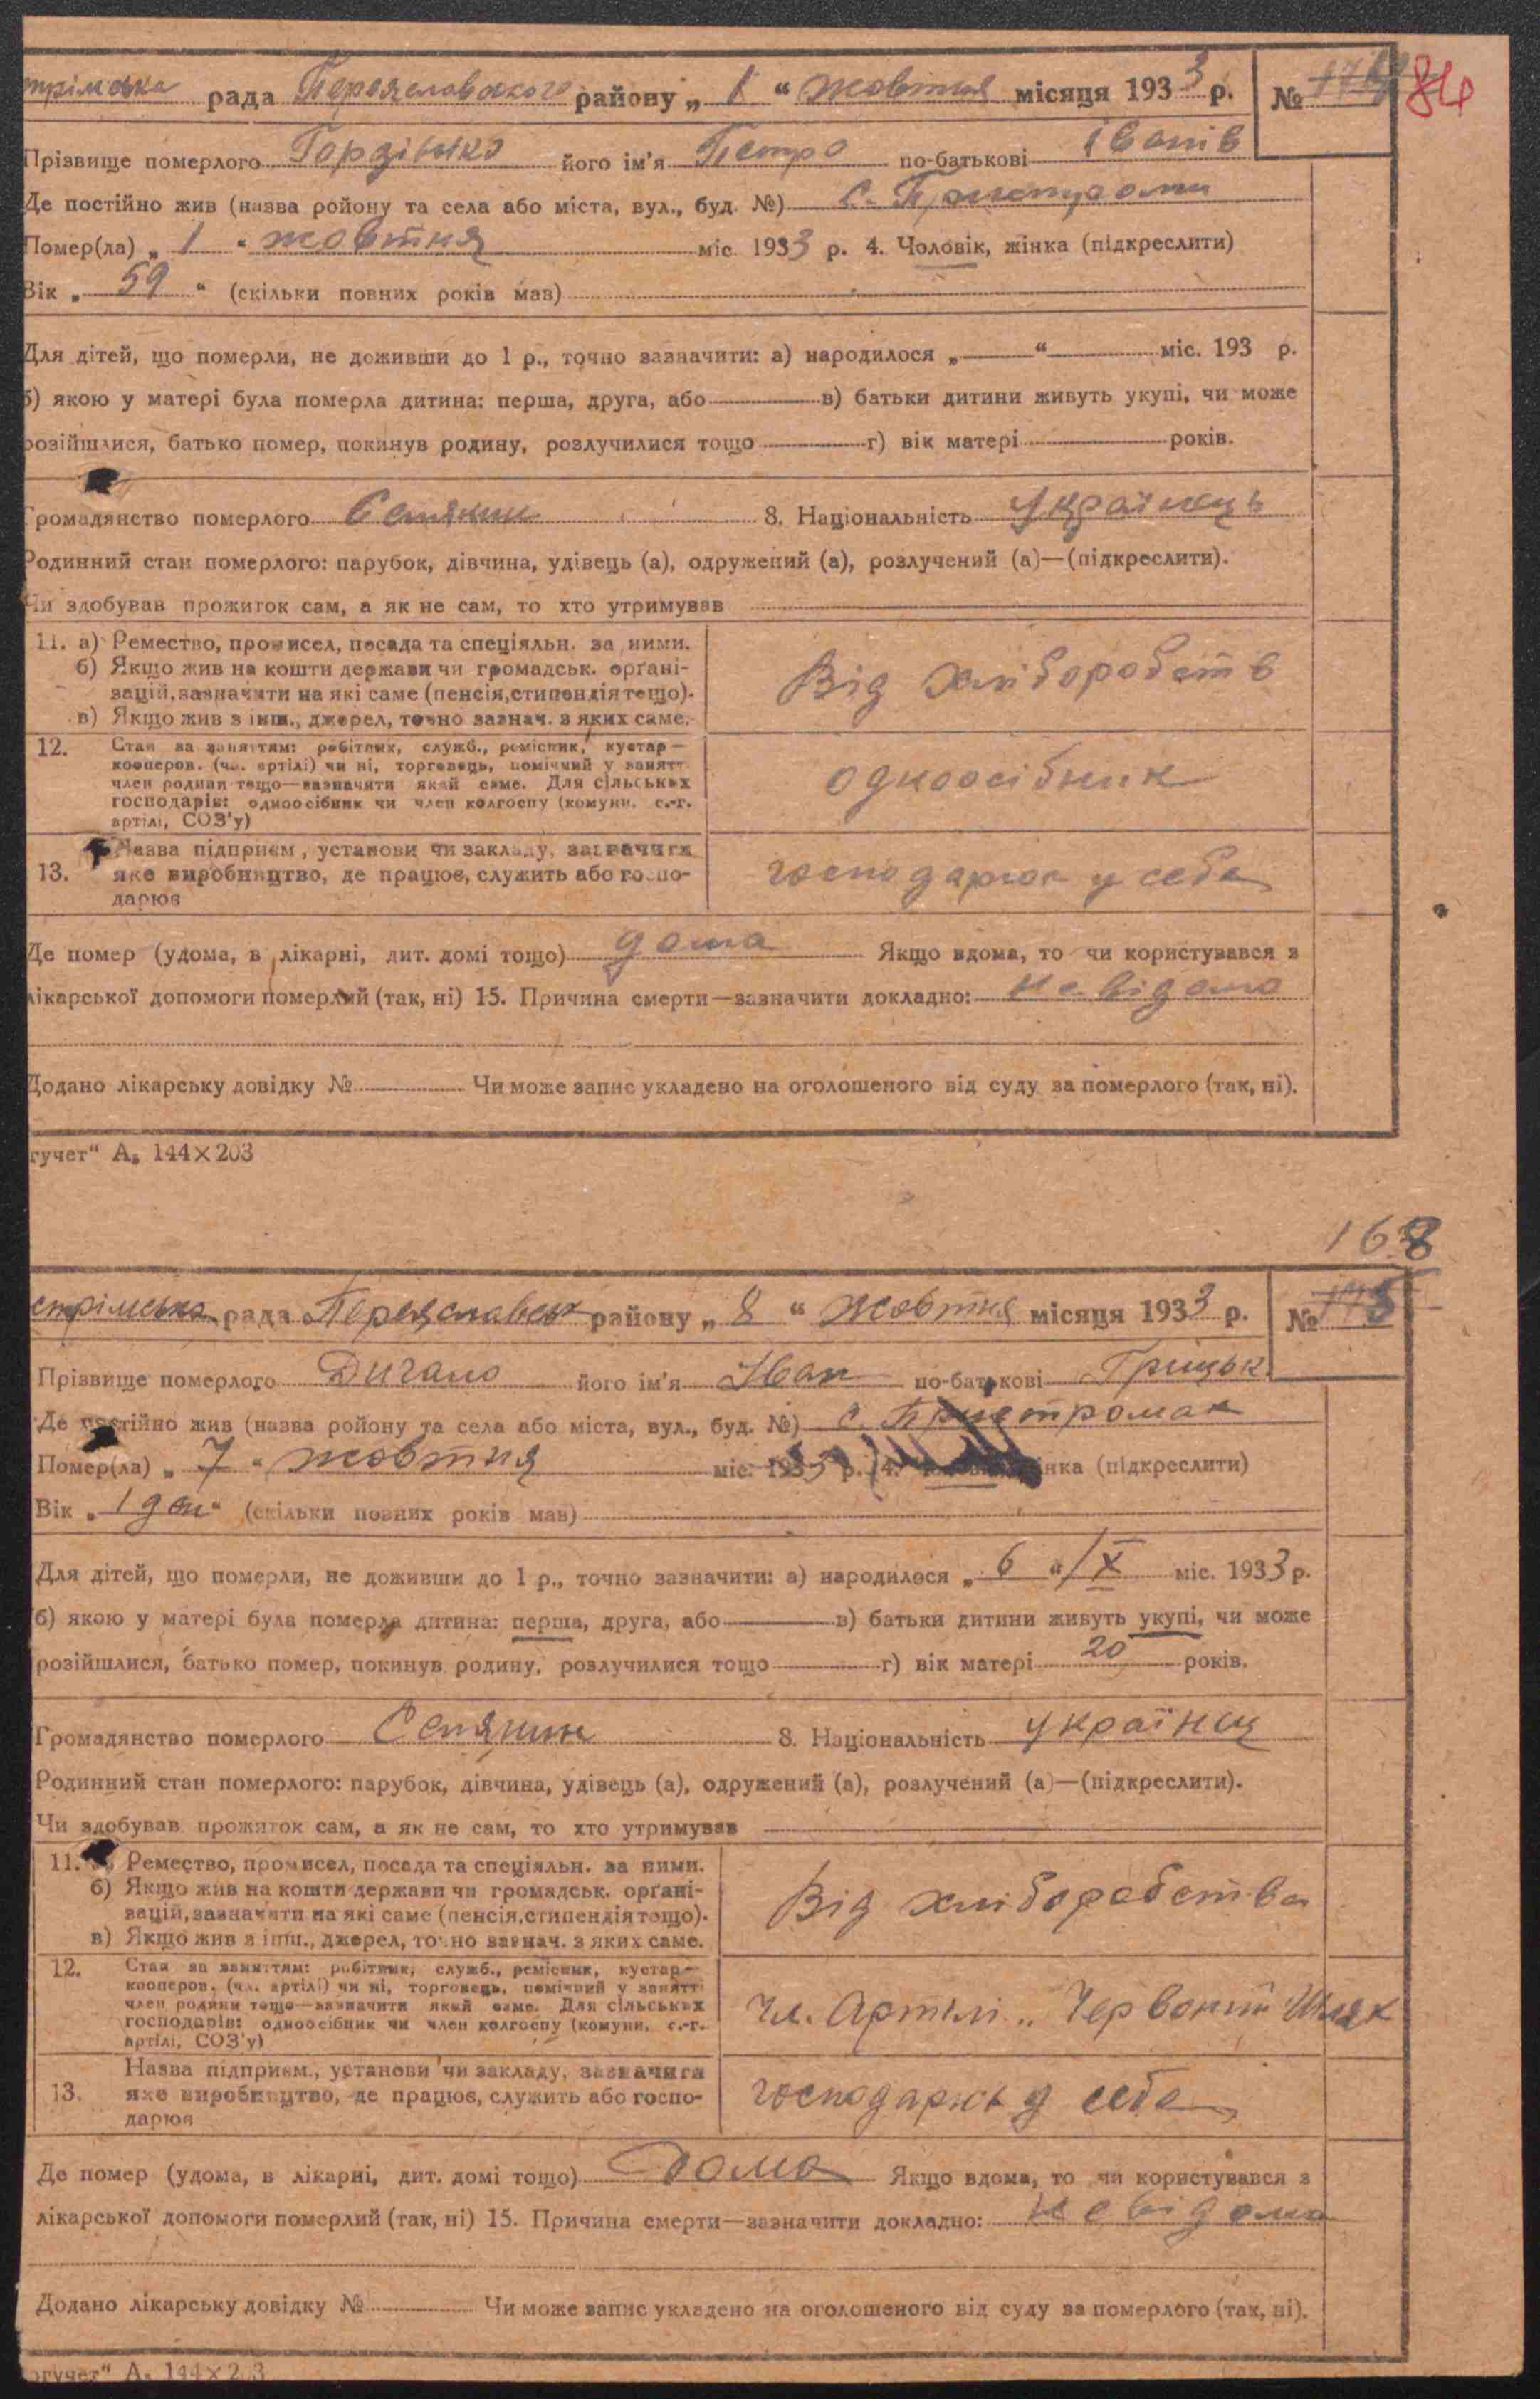 трімська рада Переяславського району „ 1 “ жовтня місяця 1933 р. № 84
Прізвище померлого Гордієнко його ім'я Петро по-батькові Іванів
Де постійно жив (назва ройону та села або міста, вул., буд. №) с. Пристроми
Помер(ла) „ 1 “ жовтня міс. 1933 р. 4. Чоловік, жінка (підкреслити)
Вік „ 59 “ (скільки повних років мав)
Для дітей, що померли, не доживши до 1 р., точно зазначити: а) народилося „ “ міс. 193 р.
б) якою у матері була померла дитина: перша, друга, або в) батьки дитини живуть укупі, чи може
розійшлися, батько помер, покинув родину, розлучилися тощо г) вік матері років.
Громадянство померлого Селянин 8. Національність Українець
Родинний стан померлого: парубок, дівчина, удівець (а), одружений (а), розлучений (а)—(підкреслити).
Чи здобував прожиток сам, а як не сам, то хто утримував
11. а) Ремество, промисел, посада та спеціяльн. за ними.
б) Якщо жив на кошти держави чи громадськ. орґані-
зацій, зазначити на які саме (пенсія, стипендія тощо).
в) Якщо жив з інш., джерел, точно зазнач. з яких саме.
Від хліборобств
12. Стан за заняттям: робітник, служб., ремісник, кустар—
кооперов. (чл. артілі) чи ні, торговець, помічний у занятті
член родини тощо—зазначити який саме. Для сільських
господарів: одноосібник чи член колгоспу (комуни, с.-г.
артілі, СОЗ'у)
одноосібник
Назва підприєм., установи чи закладу, зазначити
13. яке виробництво, де працює, служить або госпо-
дарює
господарює у себе
Де помер (удома, в лікарні, дит. домі тощо) дома Якщо вдома, то чи користувався з
лікарської допомоги померлий (так, ні) 15. Причина смерти—зазначити докладно: невідома
Додано лікарську довідку № Чи може запис укладено на оголошеного від суду за померлого (так, ні).
гучет“ А₅ 144×203
168
стрімська рада Переяславськ району „ 8 “ Жовтня місяця 1933 р. № 175
Прізвище померлого Дигало його ім'я Іван по-батькові Грицьк
Де постійно жив (назва ройону та села або міста, вул., буд. №) с. Пристромах
Помер(ла) „ 7 “ жовтня міс. 1933 р. 4. жінка (підкреслити)
Вік „ 1 ден “ (скільки повних років мав)
Для дітей, що померли, не доживши до 1 р., точно зазначити: а) народилося „ 6 “ X міс. 1933 р.
б) якою у матері була померла дитина: перша, друга, або в) батьки дитини живуть укупі, чи може
розійшлися, батько помер, покинув родину, розлучилися тощо г) вік матері 20 років.
Громадянство померлого Селянин 8. Національність українец
Родинний стан померлого: парубок, дівчина, удівець (а), одружений (а), розлучений (а)—(підкреслити).
Чи здобував прожиток сам, а як не сам, то хто утримував
11. Ремество, промисел, посада та спеціяльн. за ними.
б) Якщо жив на кошти держави чи громадськ. орґані-
зацій, зазначити на які саме (пенсія, стипендія тощо).
в) Якщо жив з інш., джерел, точно зазнач. з яких саме.
Від хліборобства
12. Стан за заняттям: робітник, служб., ремісник, кустар—
кооперов. (чл. артілі) чи ні, торговець, помічний у занятті
член родини тощо—зазначити який саме. Для сільських
господарів: одноосібник чи член колгоспу (комуни, с.-г.
артілі, СОЗ'у)
чл. Артілі „Червоний Шлях
Назва підприєм., установи чи закладу, зазначити
13. яке виробництво, де працює, служить або госпо-
дарює
господарює у себе
Де помер (удома, в лікарні, дит. домі тощо) Дома Якщо вдома, то чи користувався з
лікарської допомоги померлий (так, ні) 15. Причина смерти—зазначити докладно: невідома
Додано лікарську довідку № Чи може запис укладено на оголошеного від суду за померлого (так, ні).
огучет“ А₅ 144×203